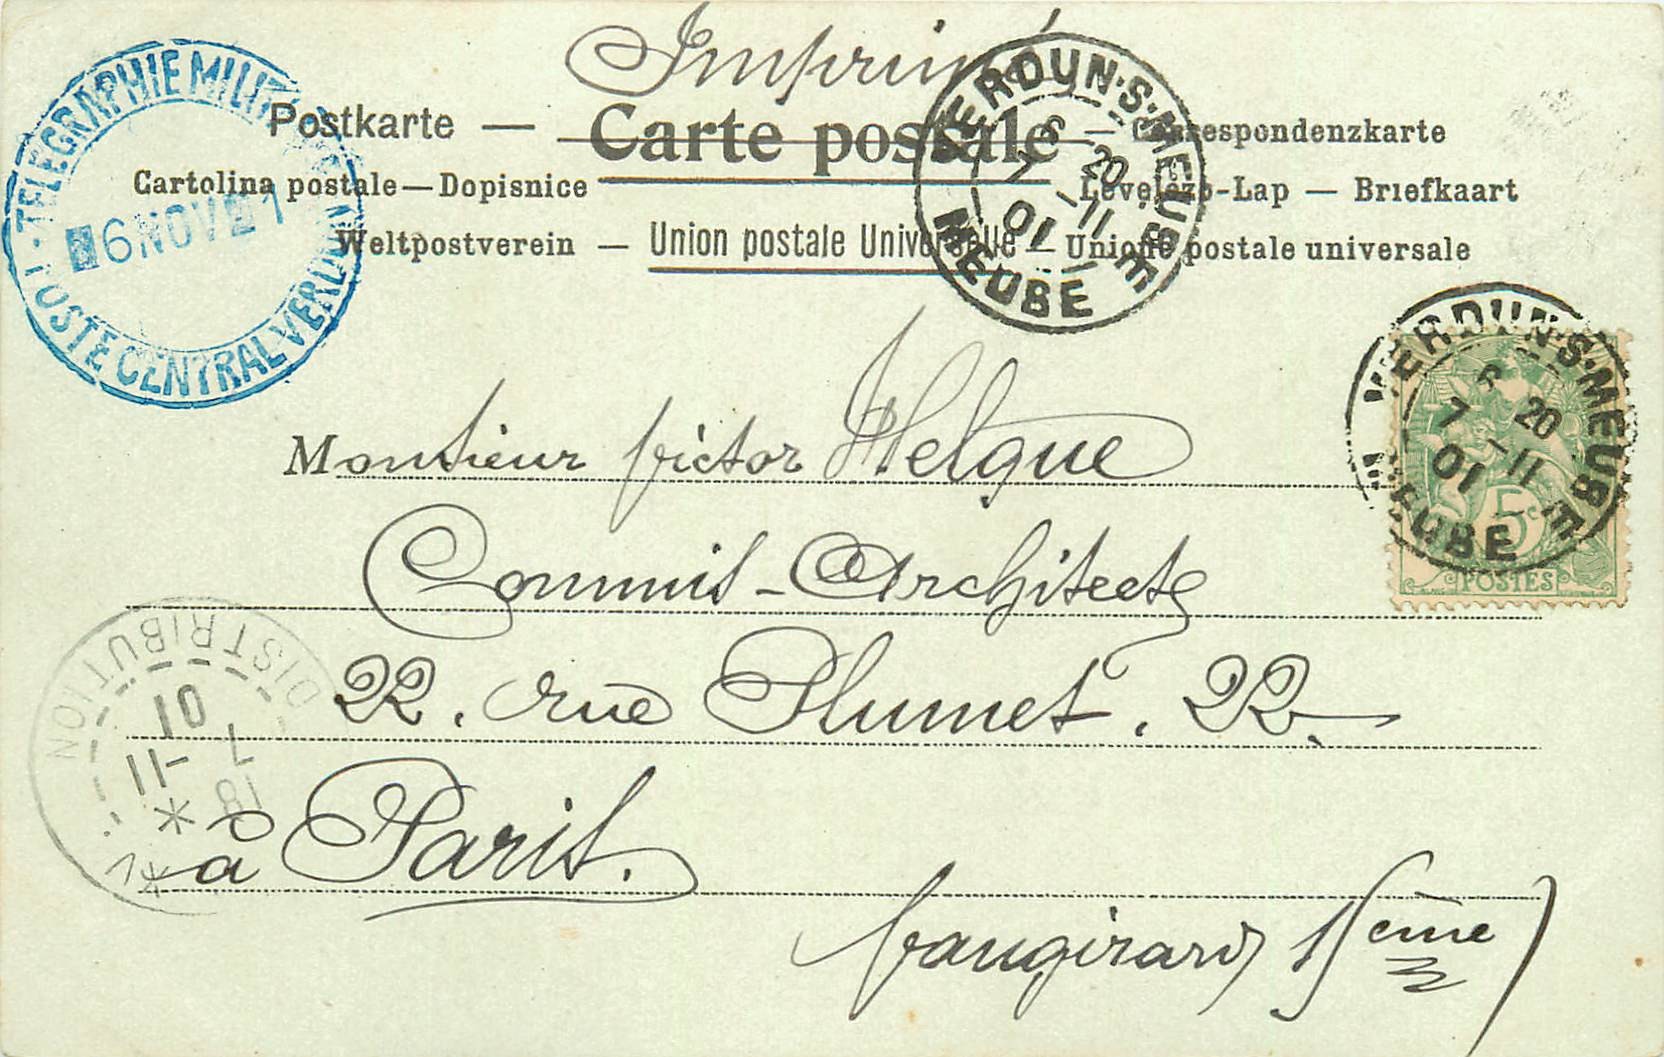 Imprimé
Postkarte — Carte postale — Correspondenzkarte
Cartolina postale — Dopisnice Levelezo-Lap — Briefkaart
Weltpostverein — Union postale Universelle — Unione postale universale
TÉLÉGRAPHIE MILIT
6 NOVE 1
POSTE CENTRAL VERDUN
VERDUN-S-MEUSE
6 20
7 -11
01
MEUSE
VERDUN-S-MEUSE
6 20
7 -11
01
MEUSE
5c
POSTES
Monsieur Victor
Commis-Architecte
22, rue Plumet, 22
à Paris.
Vaugirard 15eme)
DISTRIBUTION
18
7 -11
01